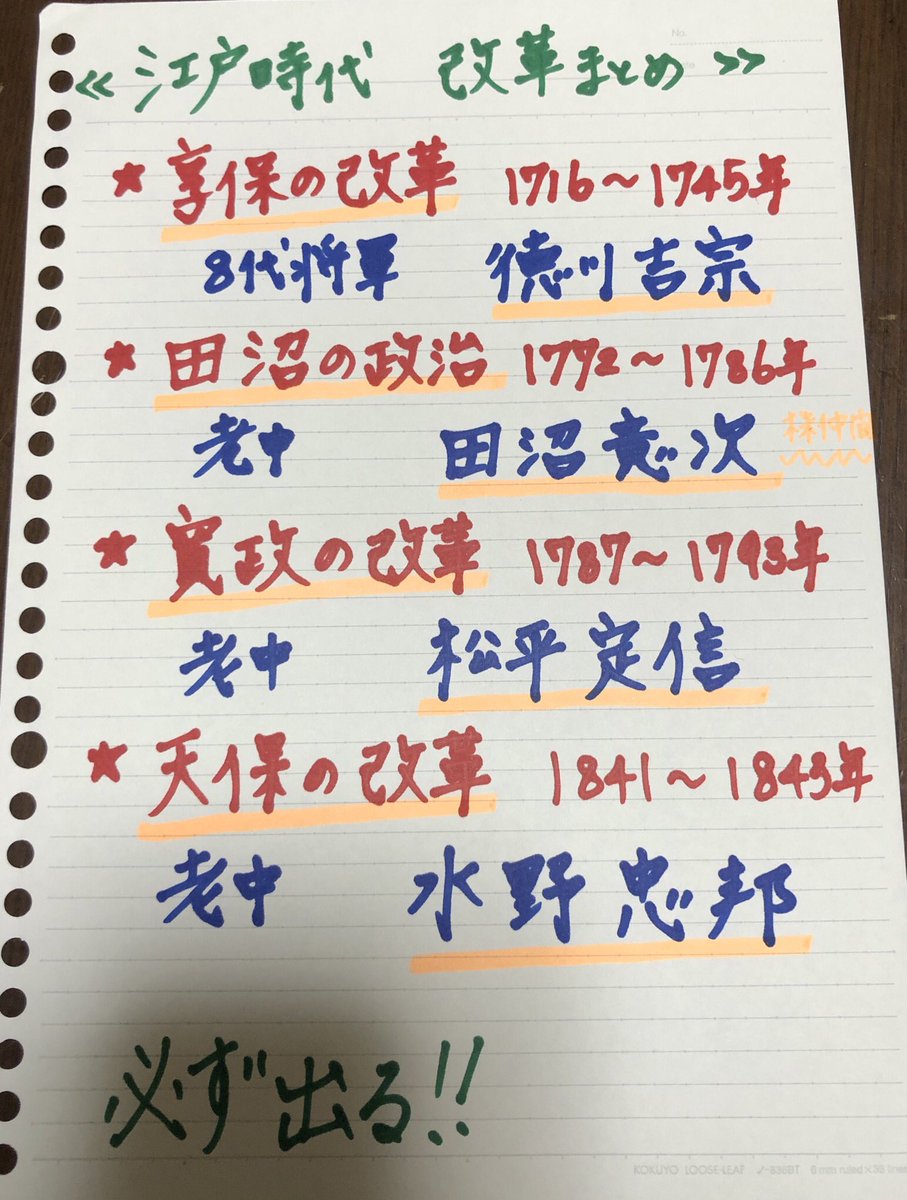 No.
≪ 江戸時代 改革まとめ ≫
★ 享保の改革 1716〜1745年
8代将軍 徳川吉宗
★ 田沼の政治 1772〜1786年
老中 田沼意次 株仲間
★ 寛政の改革 1787〜1793年
老中 松平定信
★ 天保の改革 1841〜1843年
老中 水野忠邦
必ず出る!!
KOKUYO LOOSE-LEAF ノ-836BT 6 mm ruled×36 lines